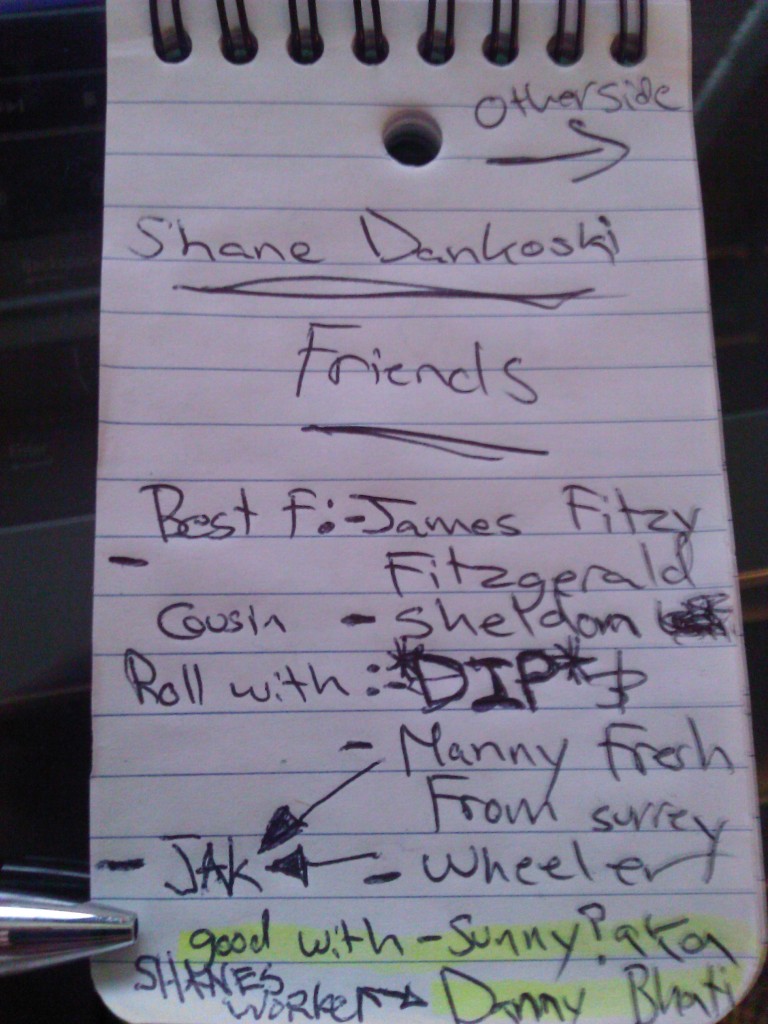 Otherside
Shane Dankoski
Friends
Best f:-James Fitzy
Fitzgerald
Cousin - Sheldon
Roll with :-*DIP*
- Manny Fresh
From surrey
- JAK - Wheeler
good with - Sunny?
SHANES
worker Danny Bhati